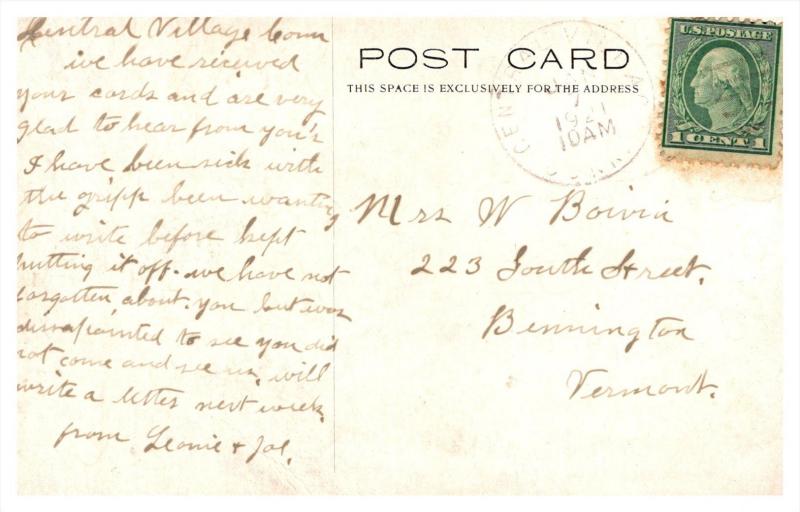 Central Village Conn
we have received
your cards and are very
glad to hear from you's
I have been sick with
the gripp been wanting
to write before kept
putting it off. we have not
forgotten about you but was
dissapointed to see you did
not come and see us, will
write a letter next week.
from Leonie + Jos.
POST CARD
THIS SPACE IS EXCLUSIVELY FOR THE ADDRESS
CENTRAL VILLAGE
7
1921
10AM
CONN.
U.S. POSTAGE
1 CENT 1
Mrs W Boivin
223 South Street.
Bennington
Vermont.